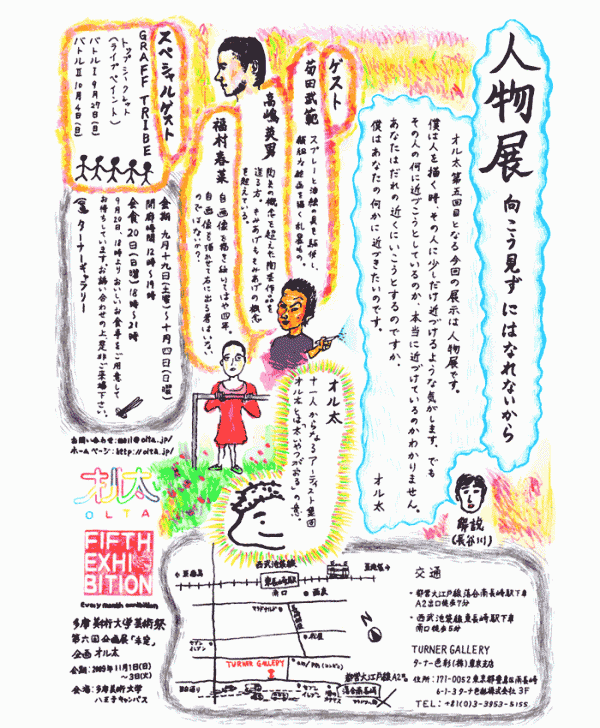 人物展
向こう見ずにはなれないから
オル太第五回目となる今回の展示は人物展です。
僕は人を描く時、その人に少しだけ近づけるような気がします。でも
その人の何に近づこうとしているのか、本当に近づけているのかわかりません。
あなたはだれの近くにいこうとするのですか。
僕はあなたの何かに近づきたいのです。
オル太
解説
(長谷川)
ゲスト
菊田武範
スプレーと油絵の具を駆使し、
高嶋英男
陶芸の概念を超えた陶芸作品を
造る方。そのあげくそのあげの概念
を超えている。
福村春菜
自画像を描き続けてはや四年。
自画像を描かせて右に出る者はいない
のではないか?
スペシャルゲスト
GRAFF TRIBE
トップシークレット
(ライブペイント)
バトルI 9月27日(日)
バトルII 10月4日(日)
会期 九月十九日(土曜)〜十月四日(日曜)
開廊時間 12時〜19時
会食 20日(日曜)18時〜21時
9月20日、18時よりおいしいお食事をご用意して
お待ちしています。お誘い合わせの上是非ご来場下さい。
会場 ターナーギャラリー
オル太
十一人からなるアーティスト集団
オル太とは「太いやつがおる」の意。
お問い合わせ:mail@olta.jp/
ホームページ:http://olta.jp/
オル太
OLTA
FIFTH
EXHI
BITION
every month exhibition
多摩美術大学芸術祭
第六回企画展「未定」
企画 オル太
会期:2009年11月1日(日)
〜3日(火)
会場:多摩美術大学
八王子キャンパス
西武池袋線
東長崎駅
南口
西友
マクドナルド
TURNER GALLERY
都営大江戸線A2出口
落合南長崎
交通
・都営大江戸線落合南長崎駅下車
A2出口徒歩7分
・西武池袋線東長崎駅下車
南口徒歩5分
TURNER GALLERY
ターナー色彩(株)東京支店
住所:171-0052 東京都豊島区南長崎
6-1-3 ターナー色彩株式会社3F
TEL:+81(0)3-3953-5155